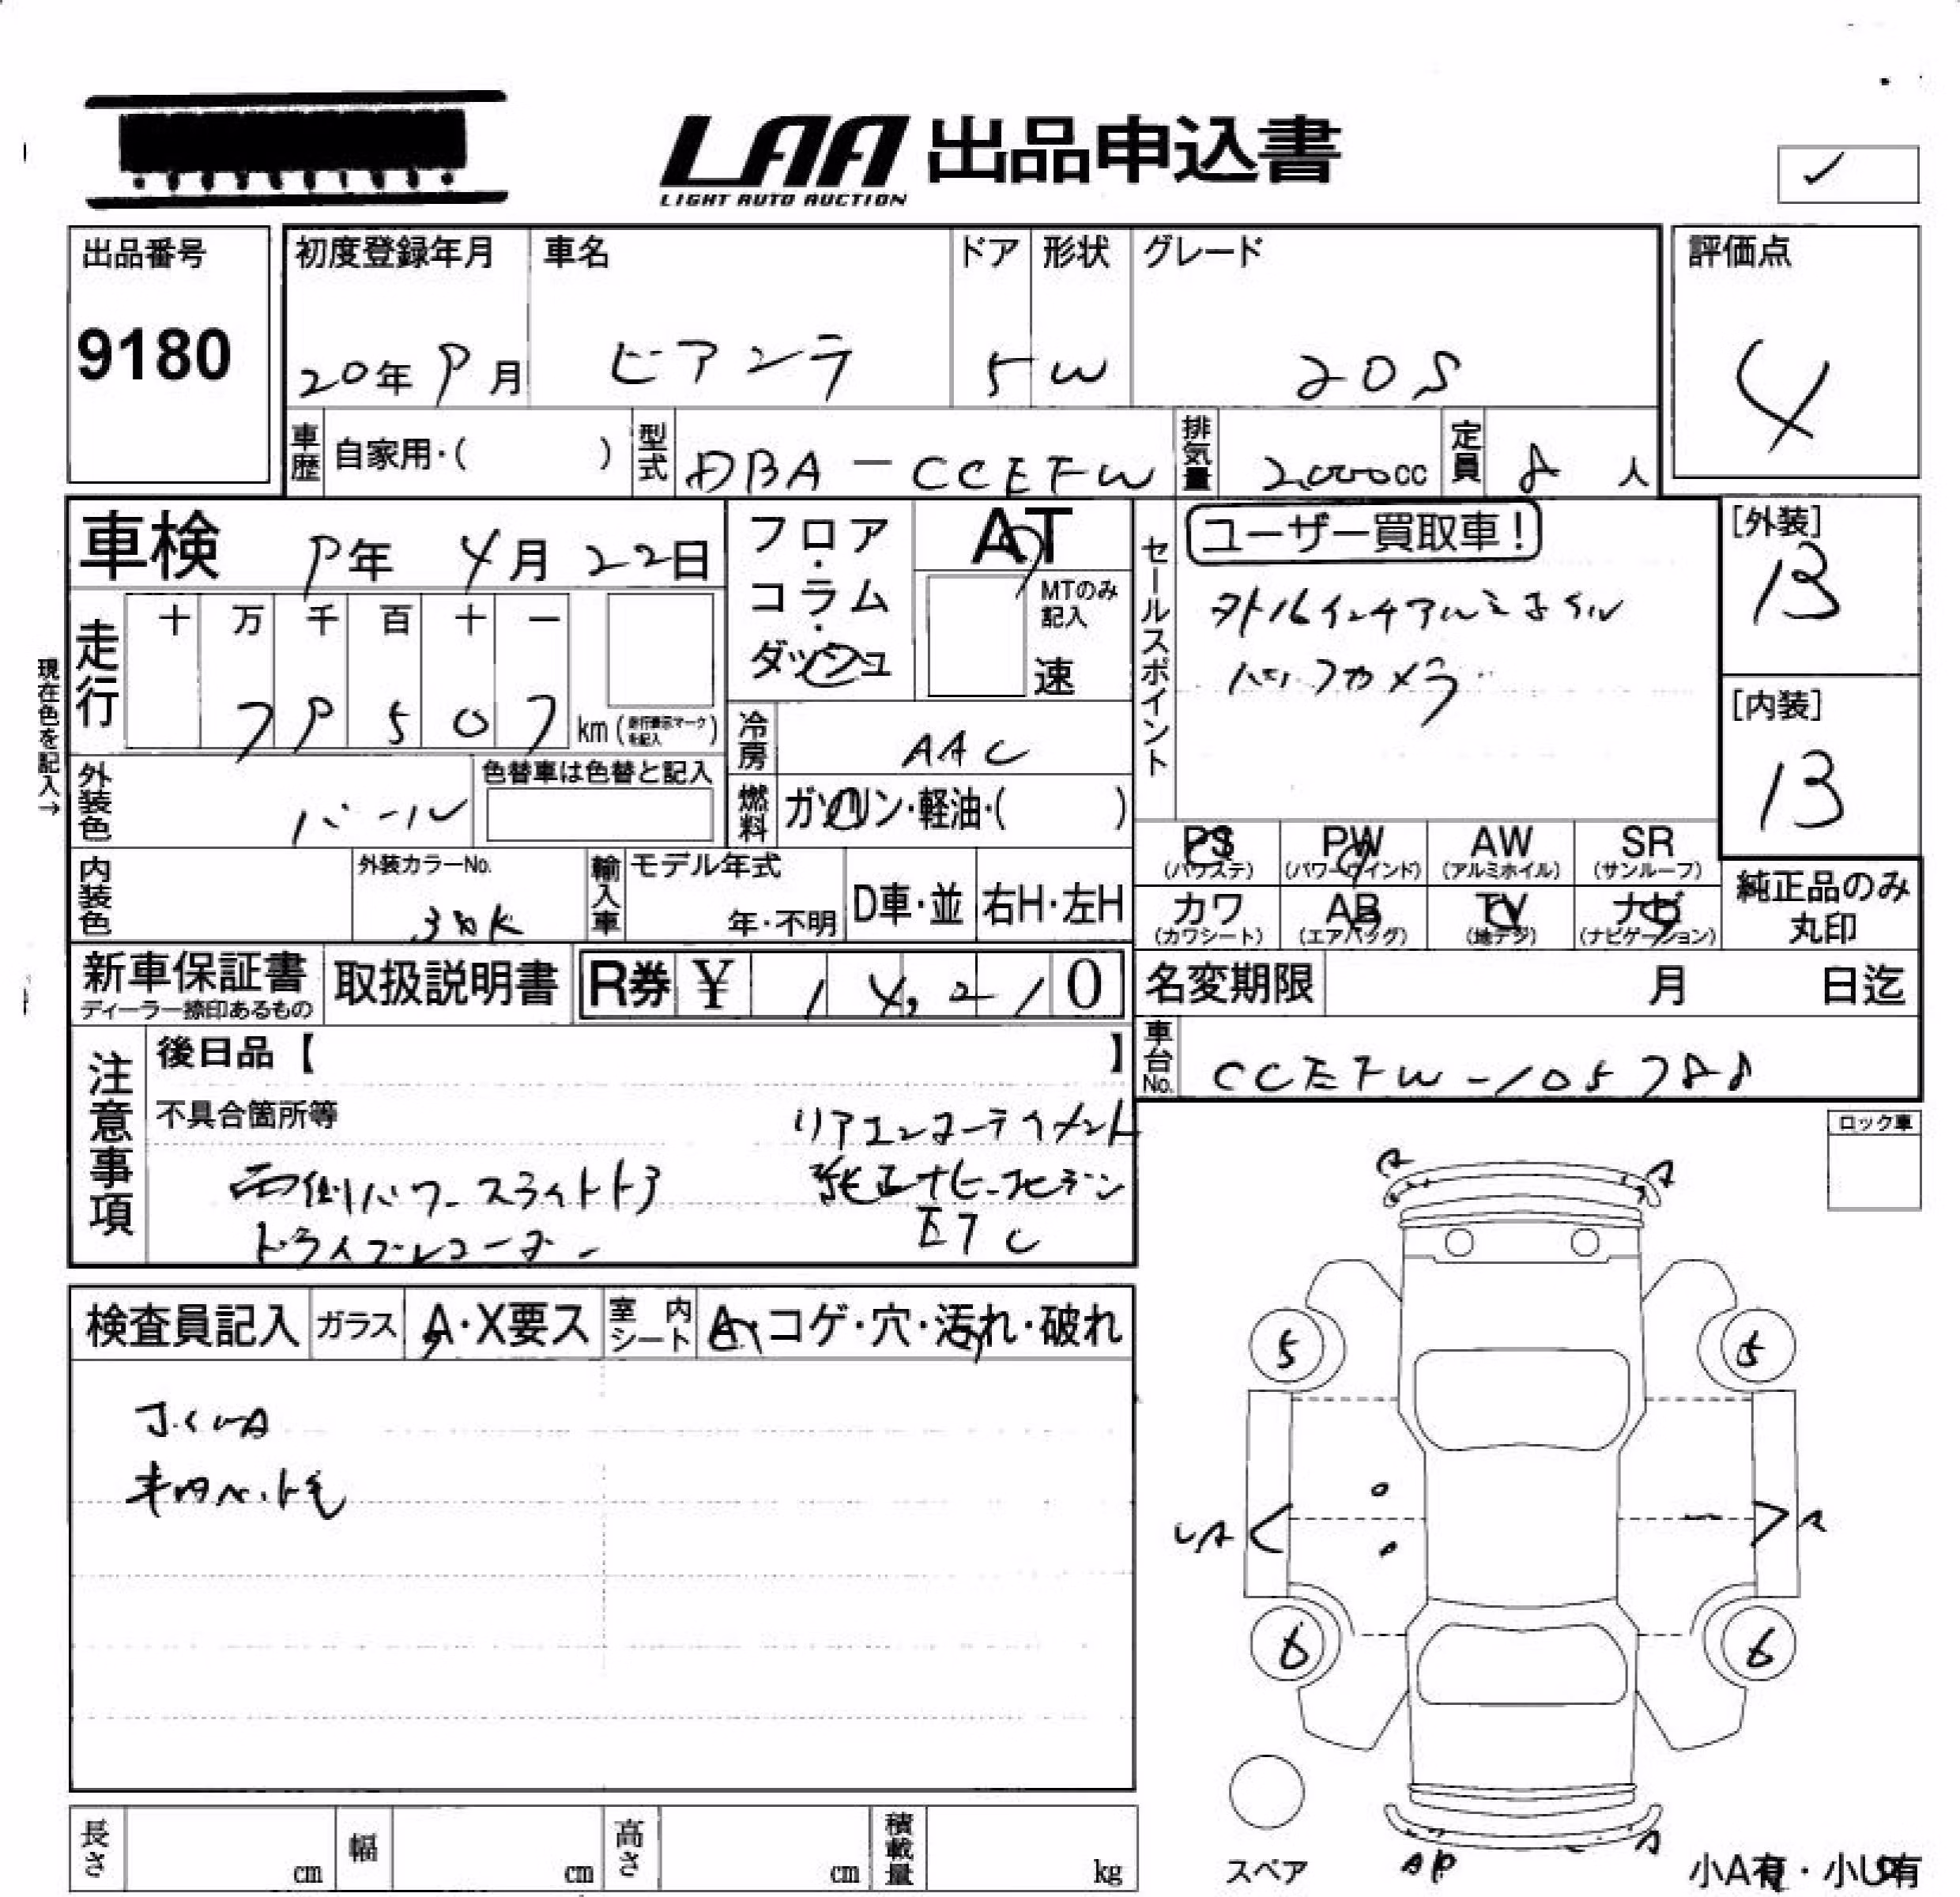 LAA 出品申込書
LIGHT AUTO AUCTION
出品番号
9180
初度登録年月
20年 9月
車名
ビアンテ
ドア
5
形状
W
グレード
20S
評価点
4
車歴 自家用・( )
型式 DBA-CCEFW
排気量 2,000cc
定員 8人
車検 9年 4月 22日
フロア・コラム・ダッシュ
AT
MTのみ記入
速
セールスポイント
ユーザー買取車!
外16インチアルミホイル
バックカメラ
[外装]
13
[内装]
13
現在色を記入→
走行
十 万 千 百 十 一
7 9 5 0 7 km (走行表示マークを記入)
冷房 AAC
燃料 ガソリン・軽油・( )
外装色 パール
色替車は色替と記入
内装色
外装カラーNo.
輸入車
モデル年式
年・不明
D車・並
右H・左H
PS (パワステ)
PW (パワーウインド)
AW (アルミホイル)
SR (サンルーフ)
カワ (カワシート)
AB (エアバッグ)
TV (地デジ)
ナビ (ナビゲーション)
純正品のみ丸印
新車保証書
ディーラー捺印あるもの
取扱説明書
R券 ¥ 14,210
名変期限 月 日迄
車台No. CCEFW-105788
注意事項
後日品【 】
不具合箇所等
リアエンターテイメント
両側パワースライドドア
純正ナビ 地デジ
ドライブレコーダー
ETC
ロック車
検査員記入
ガラス A・X要ス
室内シート A・コゲ・穴・汚れ・破れ
A
A
5
5
UA
A
6
6
スペア
小A有・小U有
長さ cm
幅 cm
高さ cm
積載量 kg